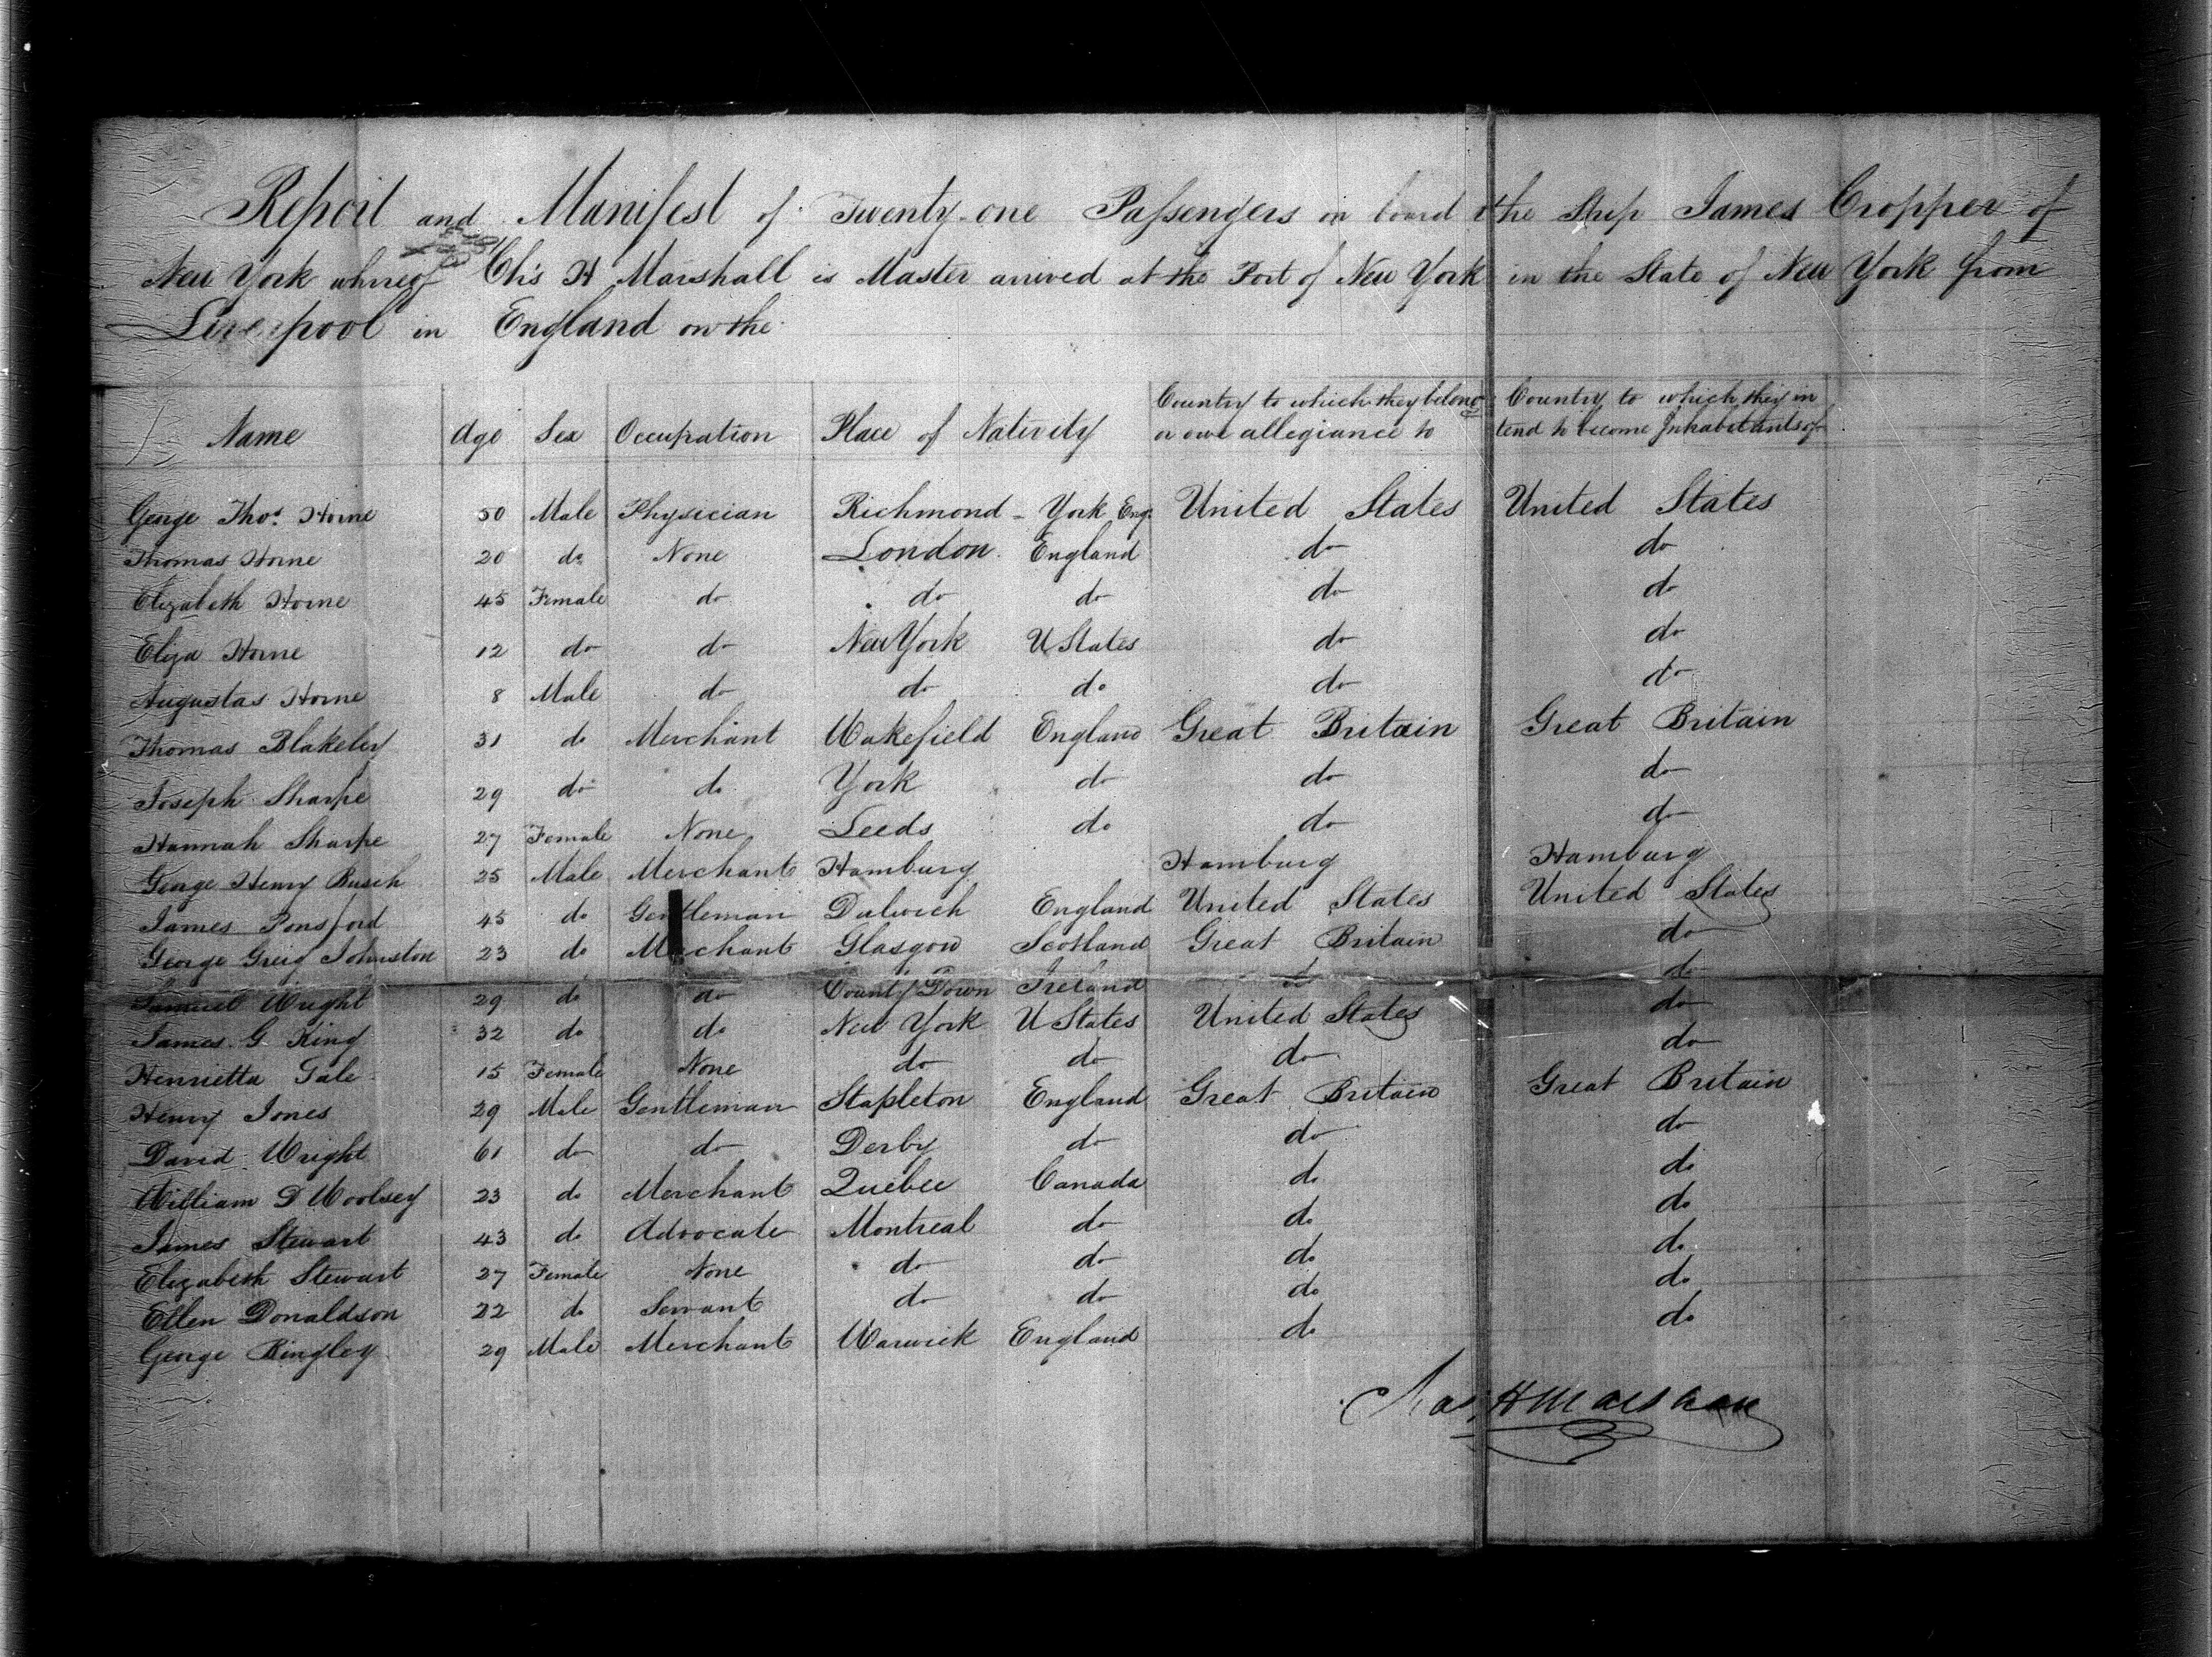 Report and Manifest of Twenty-one Passengers on board the Ship James Cropper of
New York whereof Chs H Marshall is Master arrived at the Port of New York in the State of New York from
Liverpool in England on the
Name Age Sex Occupation Place of Nativity Country to which they belong or owe allegiance to Country to which they in tend to become Inhabitants of
George Thos. Horne 50 Male Physician Richmond - York Eng. United States United States
Thomas Horne 20 do None London England do do
Elizabeth Horne 45 Female do do do do do
Eliza Horne 12 do do New York U States do do
Augustas Horne 8 Male do do do do do
Thomas Blakeley 31 do Merchant Wakefield England Great Britain Great Britain
Joseph Sharpe 29 do do York do do do
Hannah Sharpe 27 Female None Leeds do do do
George Henry Busch 25 Male Merchant Hamburg Hamburg Hamburg
James Ponsford 45 do Gentleman Dulwich England United States United States
George Greig Johnston 23 do Merchant Glasgow Scotland Great Britain do
Samuel Wright 29 do do County Down Ireland do do
James G King 32 do do New York U States United States do
Henrietta Gale 15 Female None do do do do
Henry Jones 29 Male Gentleman Stapleton England Great Britain Great Britain
David Wright 61 do do Derby do do do
William D Woolsey 23 do Merchant Quebec Canada do do
James Stewart 43 do Advocate Montreal do do do
Elizabeth Stewart 27 Female None do do do do
Ellen Donaldson 22 do Servant do do do do
George Bingley 29 Male Merchant Warwick England do do
Chas. H Marshall